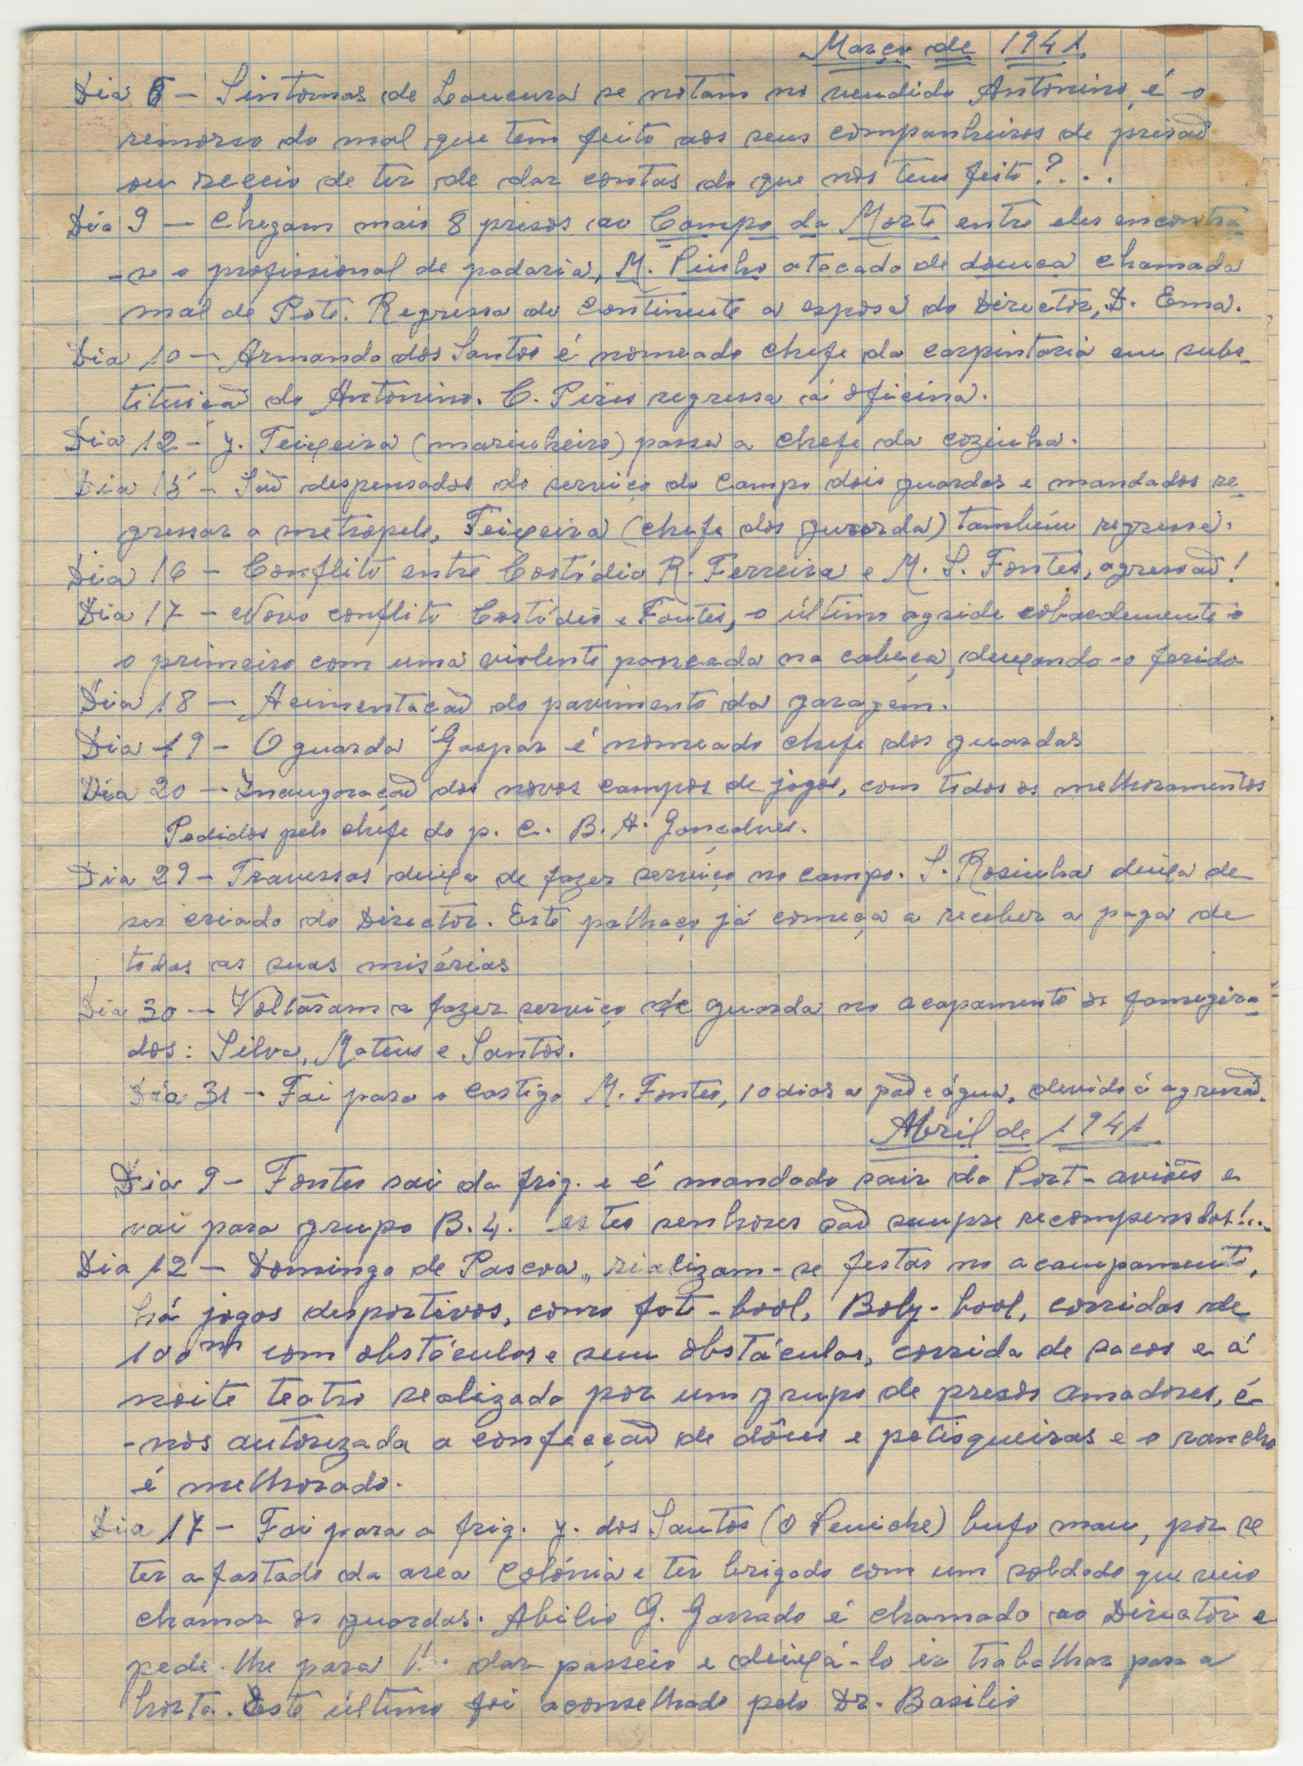 Março de 1941.
Dia 6 – Sintomas de Loucura se notam no vendido Antonino, é o
remorso do mal que tem feito aos seus companheiros de prisaõ
ou receio de ter de dar contas do que nos tem feito?...
Dia 9 – Chegam mais 8 presos ao Campo da Morte entre eles encontra
-se o profissional de padaria, M. Pinho atacado de douca chamada
mal de Pote. Regressa do Continente a esposa do Director, D. Ema.
Dia 10 – Armando dos Santos é nomeado chefe da carpintaria em subs-
tituicaõ do Antonino. C. Pires regressa á oficina.
Dia 12 – J. Teixeira (marinheiro) passa a chefe da cozinha.
Dia 15 – Saõ despensados do serviço do Campo dois guardas e mandados re-
gressar a metropele, Teixeira (chefe dos guarda) também regressa.
Dia 16 – Conflito entre Costódio R. Ferreira e M. S. Fontes, agressaõ!
Dia 17 – Novo conflito Costódio e Fontes, o último agride cobardemente o
o primeiro com uma violente pancada na cabeça, deixando-o ferido
Dia 18 – Acimentacaõ do pavimento da garagem.
Dia 19 – O guarda Gaspar é nomeado chefe dos guardas
Dia 20 – Inauguraçaõ dos novos campos de jogos, com todos os melhoramentos
Pedidos pelo chefe do p. C. B. H. Gonçalves.
Dia 29 – Travessas deixa de fazer serviço no campo. S. Rosinha deixa de
ser criado do Director. Este palhaço já começa a receber a paga de
todas as suas misérias
Dia 30 – Voltáram a fazer serviço de guarda no acapamento os famigira-
dos: Silva, Mateus e Santos.
Dia 31 – Fai para o castigo M. Fontes, 10 dias a paõ e água, devido á agressaõ.
Abril de 1941
Dia 9 – Fontes sai da frig. e é mandado sair do Port-aviões e
vai para grupo B.4. estes senhores saõ sempre recompensados!...
Dia 12 – Domingo de Pascoa, rializam-se festas no acampamento,
há jogos desportivos, como fot-bool, Boly-bool, corridas de
100m com obstáculos e sem obstáculos, corrida de sacos e á
noite teatro realizado por um grupo de presos amadores, é-
-nos autorizada a confecçaõ de dôces e petisqueiras e o rancho
é melhorado.
Dia 17 – Fai para a frig. J. dos Santos (o Peniche) bufo mau, por se
ter afastado da area Colónia e ter brigado com um soldado que veio
chamar os guardas. Abilio G. Garrado é chamado ao Director e
pede-lhe para dar passeio e deixá-lo ir trabalhar para a
horta. Este último foi aconselhado pelo Dr. Basilio